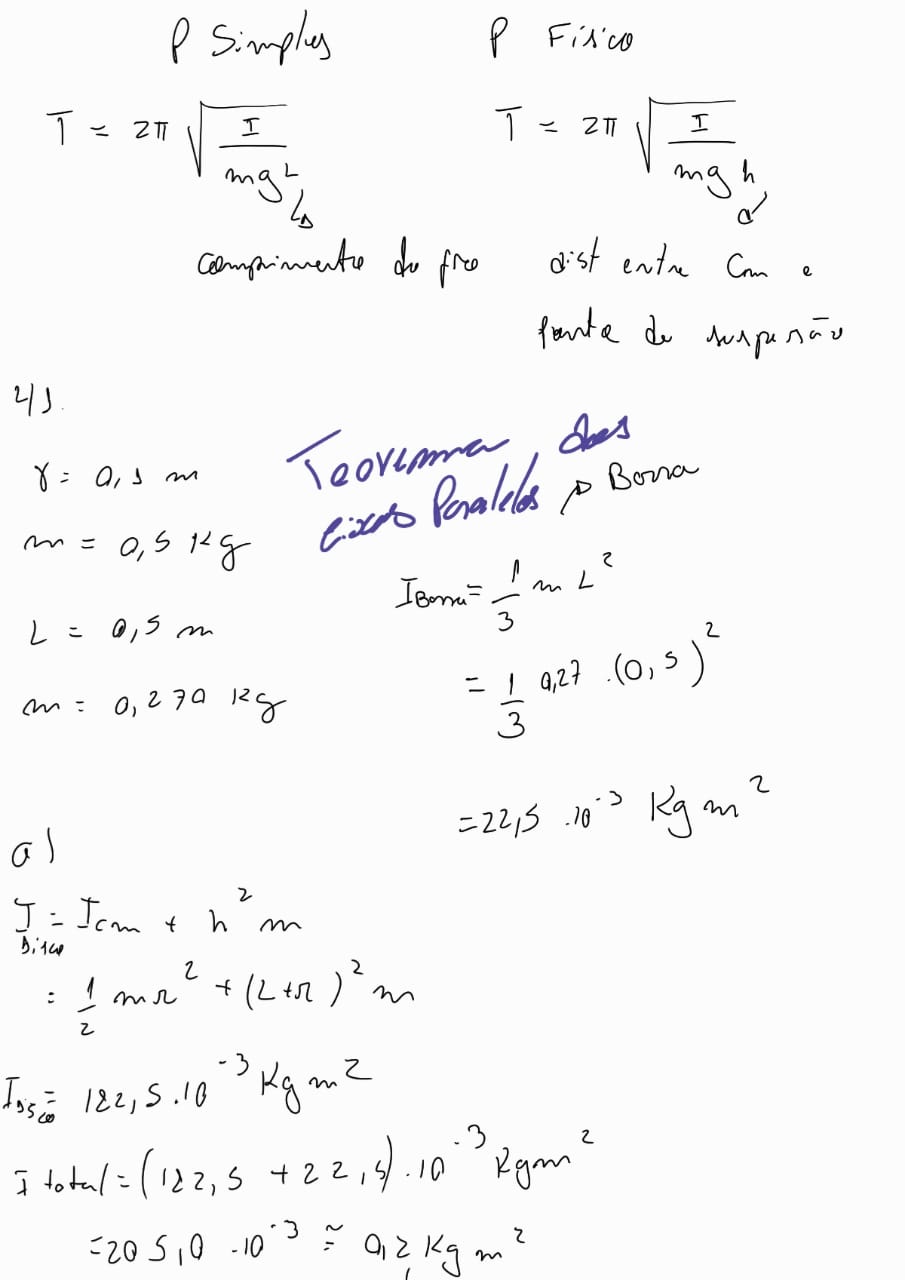 P Simples
P Físico
T = 2π √ I / mg L
T = 2π √ I / mg h
comprimento do fio
dist entre Com e
ponto de suspensão
41.
r = 0,1 m
m = 0,5 Kg
L = 0,5 m
m = 0,270 Kg
Teorema dos
Eixos Paralelos
Barra
I Barra = 1/3 m L²
= 1/3 0,27 . (0,5)²
= 22,5 . 10⁻³ Kg m²
a)
I Disco = Icm + h² m
= 1/2 m r² + (L+r)² m
I Disco = 182,5 . 10⁻³ Kg m²
I total = (182,5 + 22,5) . 10⁻³ Kg m²
= 205,0 . 10⁻³ ≅ 0,2 Kg m²